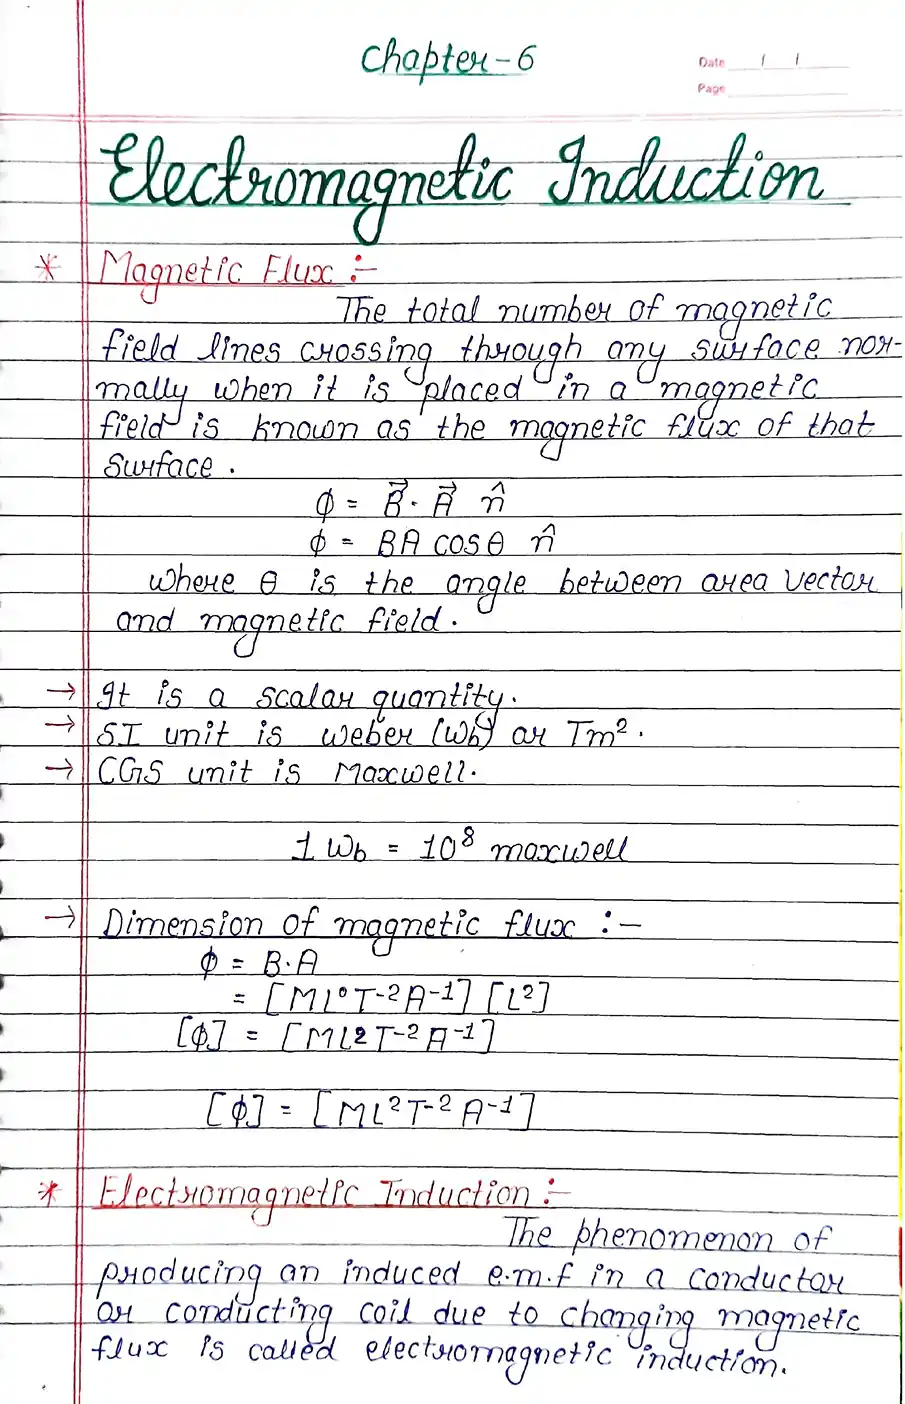 Chapter-6
Date / /
Page
Electromagnetic Induction
* Magnetic Flux :-
The total number of magnetic
field lines crossing through any surface nor-
mally when it is placed in a magnetic
field is known as the magnetic flux of that
surface.
ϕ = B⃗. A⃗ n̂
ϕ = BA cosθ n̂
where θ is the angle between area vector
and magnetic field.
→ It is a scalar quantity.
→ SI unit is weber (Wb) or Tm².
→ CGS unit is Maxwell.
1 Wb = 10⁸ maxwell
→ Dimension of magnetic flux :-
ϕ = B.A
= [ML⁰T⁻²A⁻¹] [L²]
[ϕ] = [ML2T⁻²A⁻¹]
[ϕ] = [ML²T⁻²A⁻¹]
* Electromagnetic Induction :-
The phenomenon of
producing an induced e.m.f in a conductor
or conducting coil due to changing magnetic
flux is called electromagnetic induction.